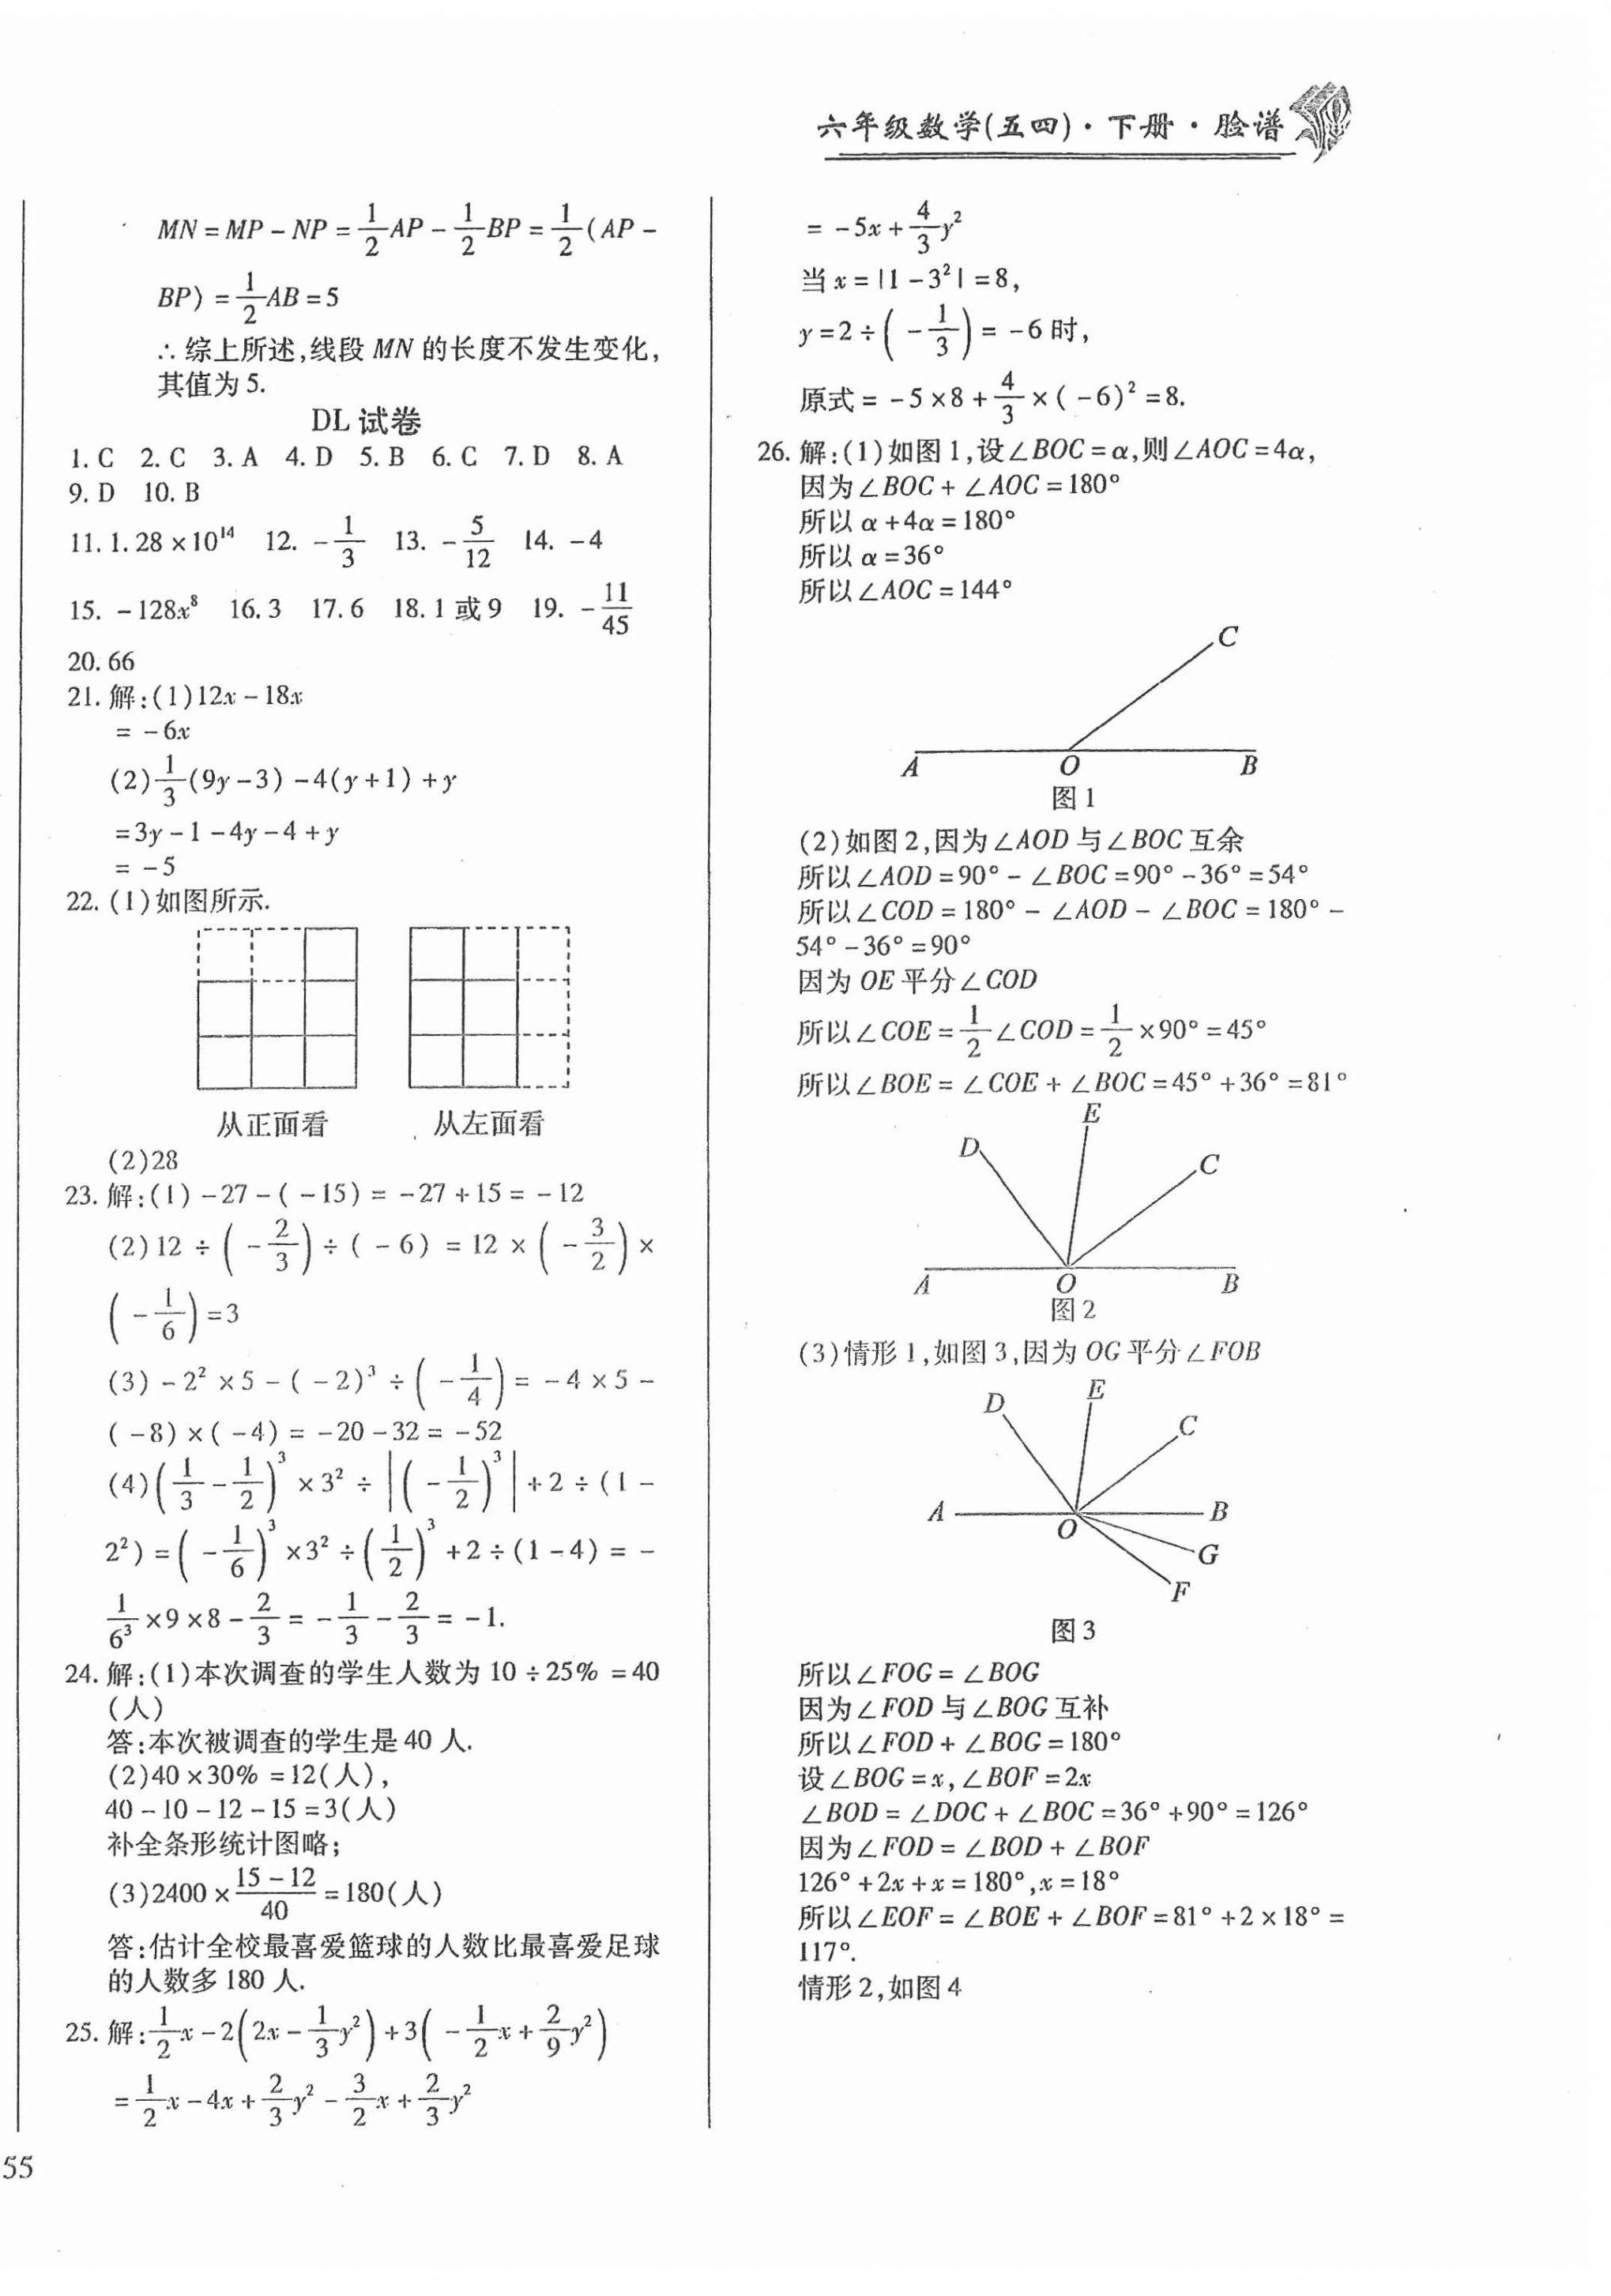 六年级数学(五四)·下册·脸谱
MN=MP-NP=\frac{1}{2}AP-\frac{1}{2}BP=\frac{1}{2}(AP-
BP)=\frac{1}{2}AB=5
∴综上所述,线段 MN 的长度不发生变化,
其值为5.
DL 试卷
1. C 2. C 3. A 4. D 5. B 6. C 7. D 8. A
9. D 10. B
11. 1.28×10^{14} 12. -\frac{1}{3} 13. -\frac{5}{12} 14. -4
15. -128x^8 16. 3 17. 6 18. 1或9 19. -\frac{11}{45}
20. 66
21. 解:(1)12x-18x
=-6x
(2)\frac{1}{3}(9y-3)-4(y+1)+y
=3y-1-4y-4+y
=-5
22. (1)如图所示.
从正面看 从左面看
(2)28
23. 解:(1)-27-(-15)=-27+15=-12
(2)12÷(-\frac{2}{3})÷(-6)=12×(-\frac{3}{2})×
(-\frac{1}{6})=3
(3)-2^2×5-(-2)^3÷(-\frac{1}{4})=-4×5-
(-8)×(-4)=-20-32=-52
(4)(\frac{1}{3}-\frac{1}{2})^3×3^2÷|(-\frac{1}{2})^3|+2÷(1-
2^2)=(-\frac{1}{6})^3×3^2÷(\frac{1}{2})^3+2÷(1-4)=-
\frac{1}{6^3}×9×8-\frac{2}{3}=-\frac{1}{3}-\frac{2}{3}=-1.
24. 解:(1)本次调查的学生人数为10÷25%=40
(人)
答:本次被调查的学生是40人.
(2)40×30%=12(人),
40-10-12-15=3(人)
补全条形统计图略;
(3)2400×\frac{15-12}{40}=180(人)
答:估计全校最喜爱篮球的人数比最喜爱足球
的人数多180人.
25. 解:\frac{1}{2}x-2(2x-\frac{1}{3}y^2)+3(-\frac{1}{2}x+\frac{2}{9}y^2)
=\frac{1}{2}x-4x+\frac{2}{3}y^2-\frac{3}{2}x+\frac{2}{3}y^2
55
=-5x+\frac{4}{3}y^2
当x=|1-3^2|=8,
y=2÷(-\frac{1}{3})=-6时,
原式=-5×8+\frac{4}{3}×(-6)^2=8.
26. 解:(1)如图1,设∠BOC=α,则∠AOC=4α,
因为∠BOC+∠AOC=180°
所以α+4α=180°
所以α=36°
所以∠AOC=144°
C
A O B
图1
(2)如图2,因为∠AOD与∠BOC互余
所以∠AOD=90°-∠BOC=90°-36°=54°
所以∠COD=180°-∠AOD-∠BOC=180°-
54°-36°=90°
因为OE平分∠COD
所以∠COE=\frac{1}{2}∠COD=\frac{1}{2}×90°=45°
所以∠BOE=∠COE+∠BOC=45°+36°=81°
E
D C
A O B
图2
(3)情形1,如图3,因为OG平分∠FOB
D E
C
A O B
G
F
图3
所以∠FOG=∠BOG
因为∠FOD与∠BOG互补
所以∠FOD+∠BOG=180°
设∠BOG=x,∠BOF=2x
∠BOD=∠DOC+∠BOC=36°+90°=126°
因为∠FOD=∠BOD+∠BOF
126°+2x+x=180°,x=18°
所以∠EOF=∠BOE+∠BOF=81°+2×18°=
117°.
情形2,如图4